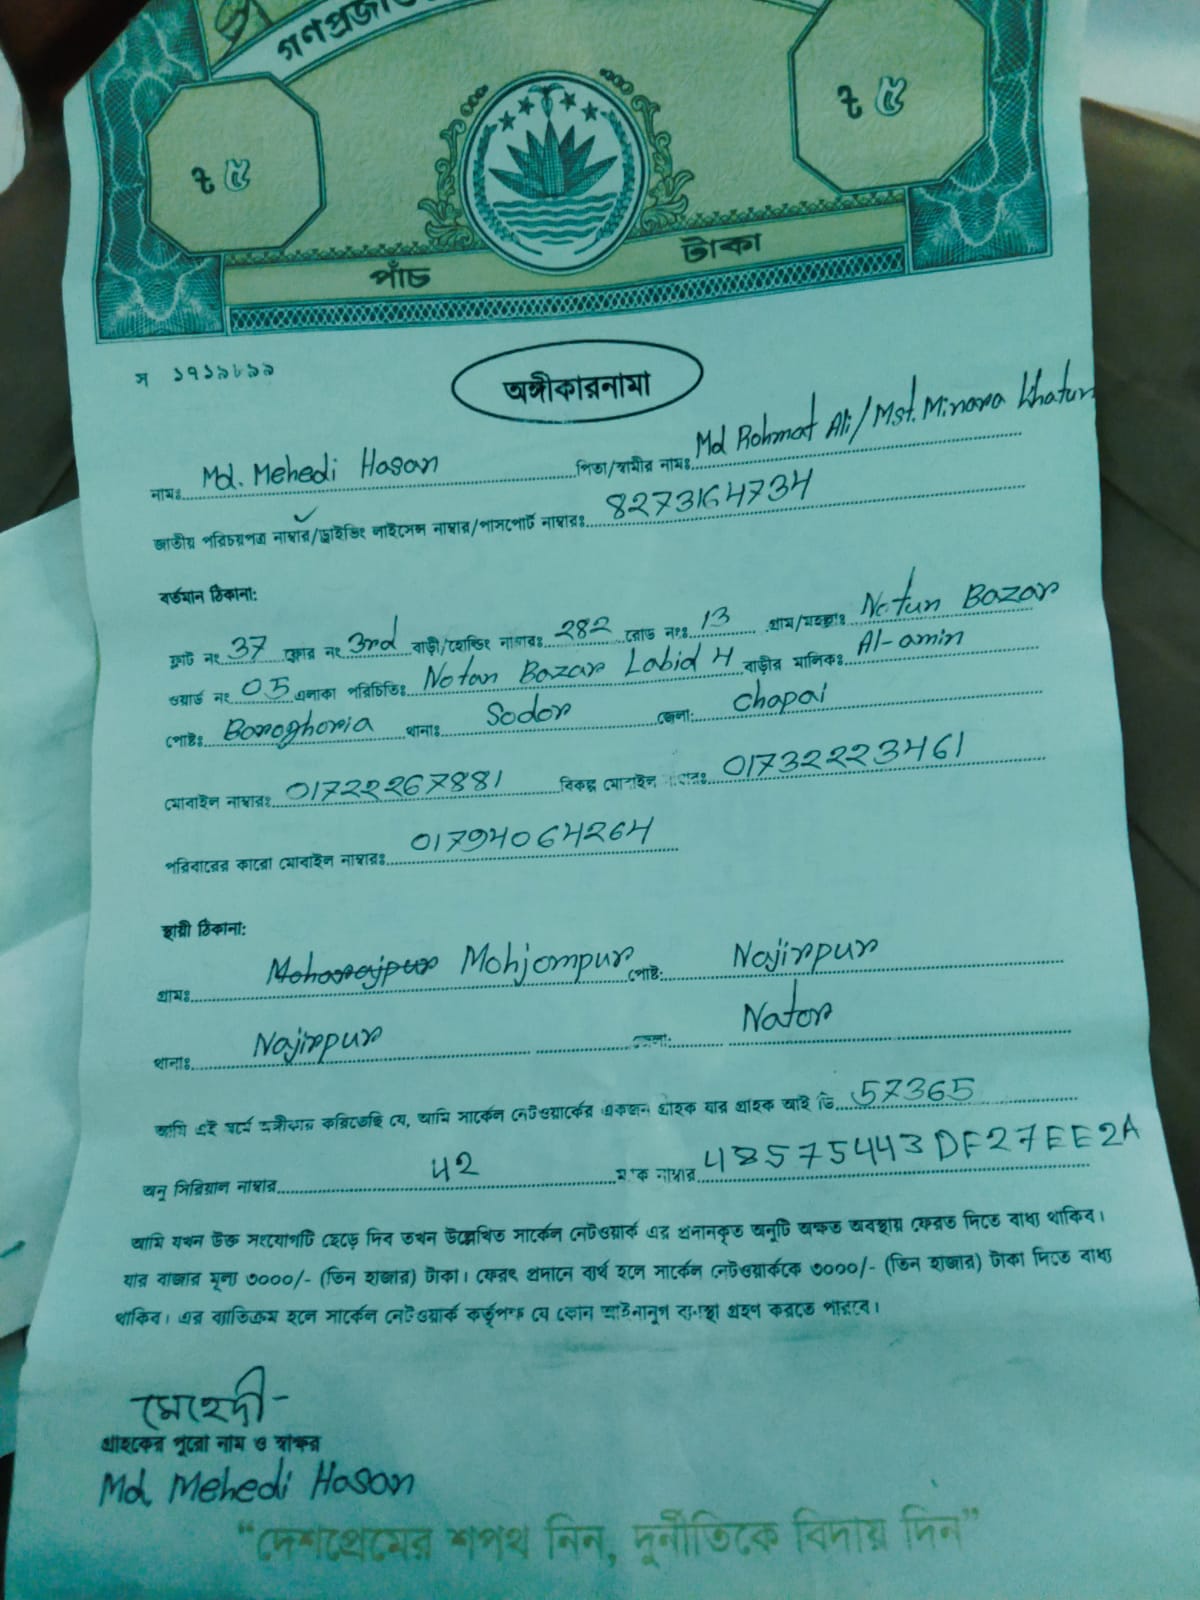 গণপ্রজাত
৳ ৫
৳ ৫
পাঁচ টাকা
স ১৭১৯৮৯৯
অঙ্গীকারনামা
নামঃ Md. Mehedi Hasan পিতা/স্বামীর নামঃ Md Rohmat Ali/Mst. Minara Khatun
জাতীয় পরিচয়পত্র নাম্বার/ড্রাইভিং লাইসেন্স নাম্বার/পাসপোর্ট নাম্বারঃ 8273164734
বর্তমান ঠিকানা:
ফ্লাট নং 37 ফ্লোর নং 3rd বাড়ী/হোল্ডিং নাম্বারঃ 282 রোড নংঃ 13 গ্রাম/মহল্লাঃ Notun Bazar
ওয়ার্ড নং 05 এলাকা পরিচিতিঃ Notan Bazar Labid 4 বাড়ীর মালিকঃ Al-amin
পোষ্টঃ Baroghoria থানাঃ Sodor জেলা: Chapai
মোবাইল নাম্বারঃ 01722267881 বিকল্প মোবাইল নাম্বারঃ 01732223461
পরিবারের কারো মোবাইল নাম্বারঃ 01794064264
স্থায়ী ঠিকানা:
গ্রামঃ Moharajpur Mohjompur পোষ্ট: Najirpur
থানাঃ Najirpur জেলা: Nator
আমি এই মর্মে অঙ্গীকার করিতেছি যে, আমি সার্কেল নেটওয়ার্কের একজন গ্রাহক যার গ্রাহক আই ডি 57365
অনু সিরিয়াল নাম্বার 42 ম্যাক নাম্বার 48575443DF27EE2A
আমি যখন উক্ত সংযোগটি ছেড়ে দিব তখন উল্লেখিত সার্কেল নেটওয়ার্ক এর প্রদানকৃত অনুটি অক্ষত অবস্থায় ফেরত দিতে বাধ্য থাকিব।
যার বাজার মূল্য ৩০০০/- (তিন হাজার) টাকা। ফেরৎ প্রদানে ব্যর্থ হলে সার্কেল নেটওয়ার্ককে ৩০০০/- (তিন হাজার) টাকা দিতে বাধ্য
থাকিব। এর ব্যাতিক্রম হলে সার্কেল নেটওয়ার্ক কর্তৃপক্ষ যে কোন আইনানুগ ব্যবস্থা গ্রহণ করতে পারবে।
মেহেদী-
গ্রাহকের পুরো নাম ও স্বাক্ষর
Md. Mehedi Hasan
“দেশপ্রেমের শপথ নিন, দুর্নীতিকে বিদায় দিন”